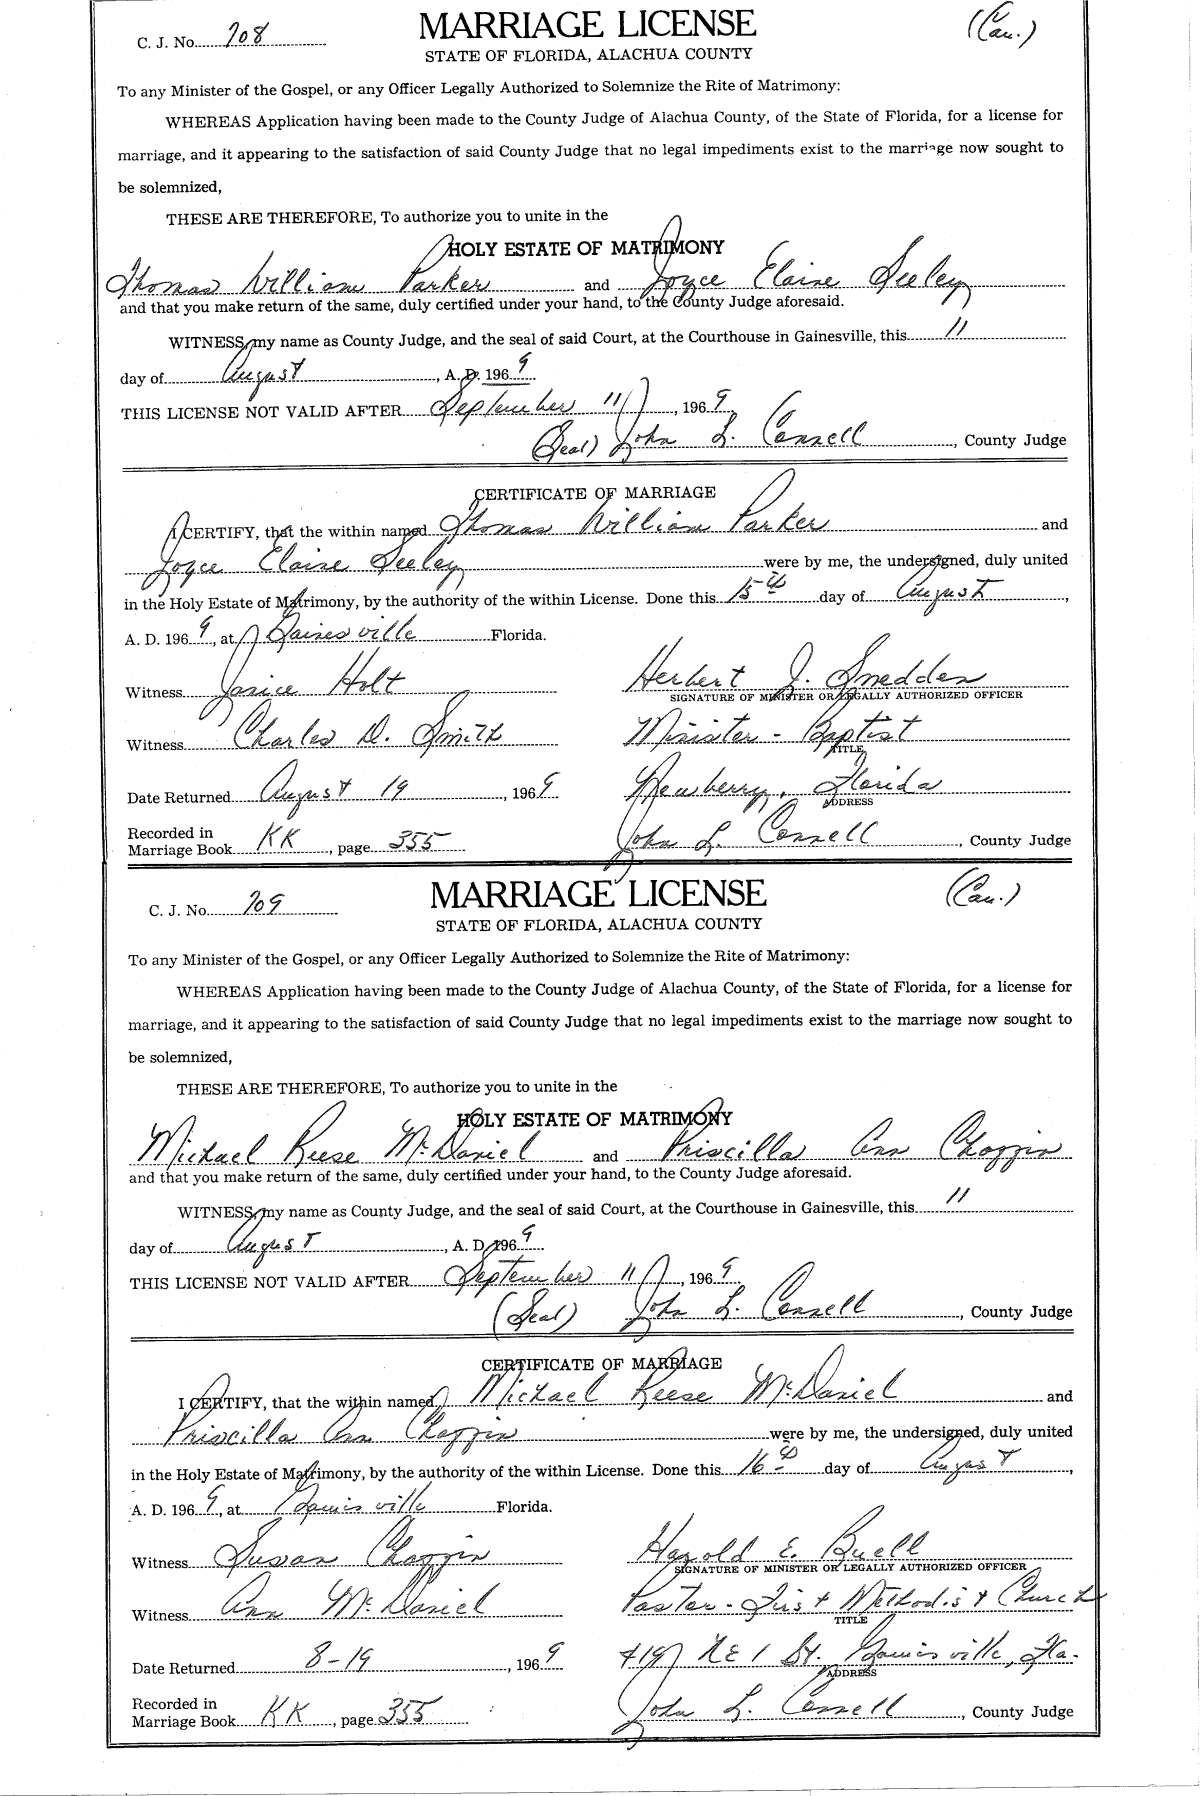 C. J. No. 708 MARRIAGE LICENSE (Cau.)
STATE OF FLORIDA, ALACHUA COUNTY
To any Minister of the Gospel, or any Officer Legally Authorized to Solemnize the Rite of Matrimony:
WHEREAS Application having been made to the County Judge of Alachua County, of the State of Florida, for a license for
marriage, and it appearing to the satisfaction of said County Judge that no legal impediments exist to the marriage now sought to
be solemnized,
THESE ARE THEREFORE, To authorize you to unite in the
HOLY ESTATE OF MATRIMONY
Thomas William Parker and Joyce Elaine Seeley
and that you make return of the same, duly certified under your hand, to the County Judge aforesaid.
WITNESS, my name as County Judge, and the seal of said Court, at the Courthouse in Gainesville, this 11
day of August, A. D. 1969
THIS LICENSE NOT VALID AFTER September 11, 1969
(Seal) John L. Connell, County Judge
CERTIFICATE OF MARRIAGE
I CERTIFY, that the within named Thomas William Parker and
Joyce Elaine Seeley were by me, the undersigned, duly united
in the Holy Estate of Matrimony, by the authority of the within License. Done this 15th day of August,
A. D. 1969, at Gainesville Florida.
Witness Janice Holt Herbert J. Snedden
SIGNATURE OF MINISTER OR LEGALLY AUTHORIZED OFFICER
Witness Charles D. Smith Minister - Baptist
TITLE
Date Returned August 19, 1969 Newberry, Florida
ADDRESS
Recorded in
Marriage Book KK, page 355 John L. Connell, County Judge
C. J. No. 709 MARRIAGE LICENSE (Cau.)
STATE OF FLORIDA, ALACHUA COUNTY
To any Minister of the Gospel, or any Officer Legally Authorized to Solemnize the Rite of Matrimony:
WHEREAS Application having been made to the County Judge of Alachua County, of the State of Florida, for a license for
marriage, and it appearing to the satisfaction of said County Judge that no legal impediments exist to the marriage now sought to
be solemnized,
THESE ARE THEREFORE, To authorize you to unite in the
HOLY ESTATE OF MATRIMONY
Michael Reese McDaniel and Priscilla Ann Chappin
and that you make return of the same, duly certified under your hand, to the County Judge aforesaid.
WITNESS, my name as County Judge, and the seal of said Court, at the Courthouse in Gainesville, this 11
day of August, A. D. 1969
THIS LICENSE NOT VALID AFTER September 11, 1969
(Seal) John L. Connell, County Judge
CERTIFICATE OF MARRIAGE
I CERTIFY, that the within named Michael Reese McDaniel and
Priscilla Ann Chappin were by me, the undersigned, duly united
in the Holy Estate of Matrimony, by the authority of the within License. Done this 16th day of August,
A. D. 1969, at Gainesville Florida.
Witness Susan Chappin Harold E. Buell
SIGNATURE OF MINISTER OR LEGALLY AUTHORIZED OFFICER
Witness Ann McDaniel Pastor - First Methodist Church
TITLE
Date Returned 8-19, 1969 419 NE 1 St. Gainesville, Fla.
ADDRESS
Recorded in
Marriage Book KK, page 355 John L. Connell, County Judge